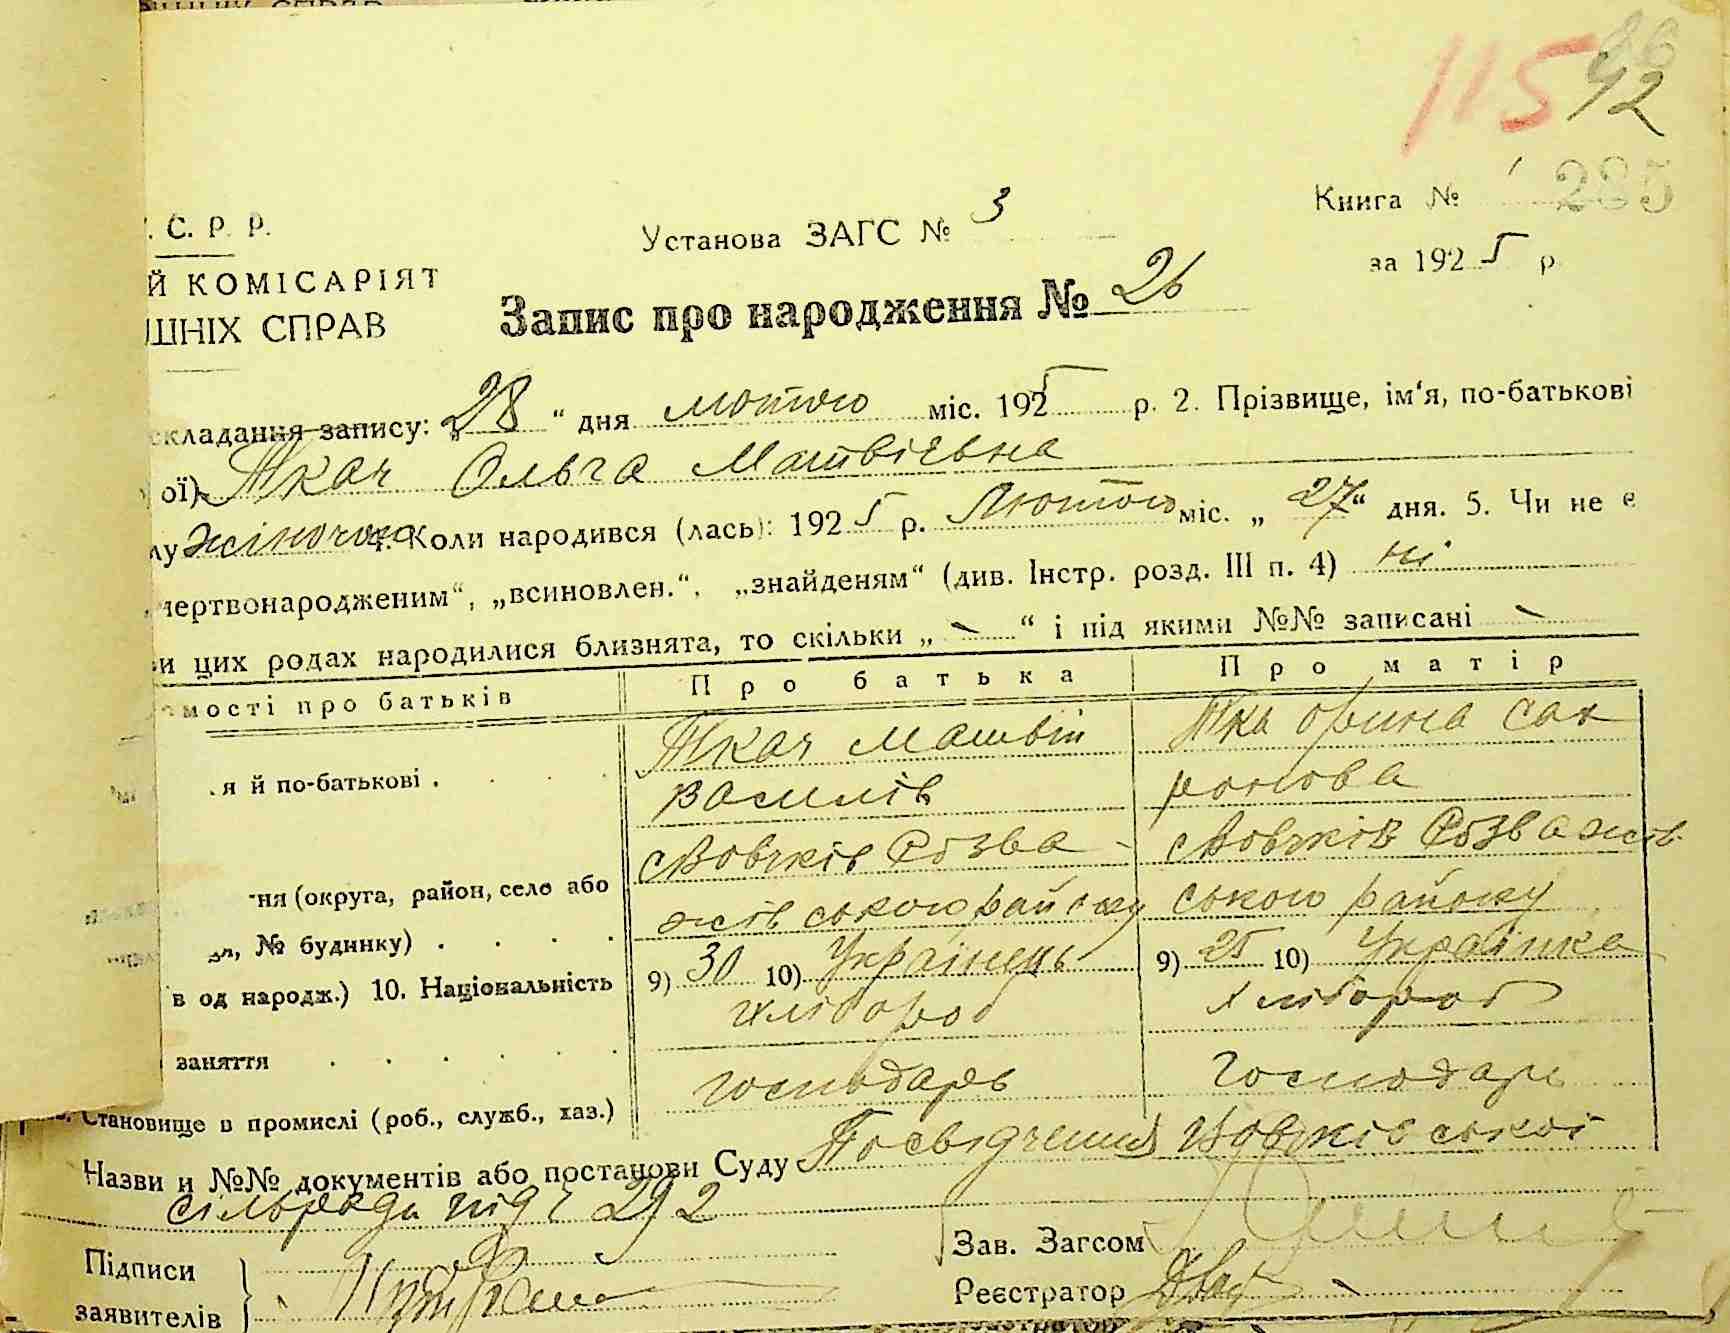 115 42
285
. С. Р. Р.
Установа ЗАГС № 3
Книга №
Й КОМІСАРІЯТ
за 1925 р.
ШНІХ СПРАВ
Запис про народження № 26
складання запису: „28“ дня лютого міс. 1925 р. 2. Прізвище, ім'я, по-батькові
ої) Ткач Ольга Матвієвна
лу жіночого 4. Коли народився (лась): 1925 р. Лютого міс. „27“ дня. 5. Чи не є
мертвонародженим“, „всиновлен.“, „знайденям“ (див. Інстр. розд. III п. 4) ні
и цих родах народилися близнята, то скільки „ — “ і під якими №№ записані —
мості про батьків Про батька Про матір
Ткач Матвій Тка Орина Сах
я й по-батькові . . . . Василів ронова
с Вовчків Розва- с Вовчків Розважів-
ня (округа, район, село або жівського району ського району
№ будинку) . . . .
в од народж.) 10. Національність 9) 30 10) Українець 9) 25 10) Українка
хлібороб хлібороб
заняття . . . . . .
господарь господарь
Становище в промислі (роб., служб., хаз.)
Назви и №№ документів або постанови Суду Посвідчення Вовчківської
сільради під ч 292
Зав. Загсом
Підписи
заявителів
Реєстратор